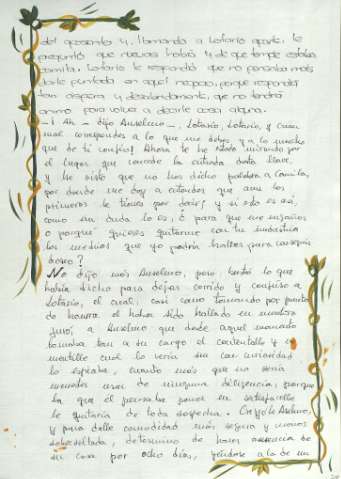 del aposento y, llamando a Lotario aparte, le
preguntó que nuevas había y de que temple estaba
Camila. Lotario le respondió que no pensaba más
darle puntada en aquel negocio, porque respondía
tan áspera y desabridamente, que no tendría
ánimo para volver a decirle cosa alguna.
-¡Ah - dijo Anselmo -, Lotario, Lotario, y cuan
mal correspondes a lo que me debes y a lo mucho
que de ti confío! Ahora te he estado mirando por
el lugar que concede la entrada desta llave,
y he visto que no has dicho palabra a Camila,
por donde me doy a entender que aun las
primeras le tienes por decir; y si esto es así,
como sin duda lo es, ¿ para que me engañas
o porque quieres quitarme con tu industria
los medios que yo podría hallar para conseguir mi
deseo?
No dijo más Anselmo, pero bastó lo que
había dicho para dejar corrido y confuso a
Lotario, el cual, casi como tomando por punto
de honra el haber sido hallado en mentira
juró a Anselmo que desde aquel momento
tomaba tan a su cargo el contentalle y no
mentille cual lo vería si con curiosidad
lo espiaba, cuanto más que no sería
menester usar de ninguna diligencia, porque
la que él pensaba poner en satisfacelle
le quitaría de toda sospecha. Creyólo Anselmo,
y para dalle comodidad más segura y menos
sobresaltada, determinó de hacer ausencia de
su casa por ocho días, yéndose a la de un